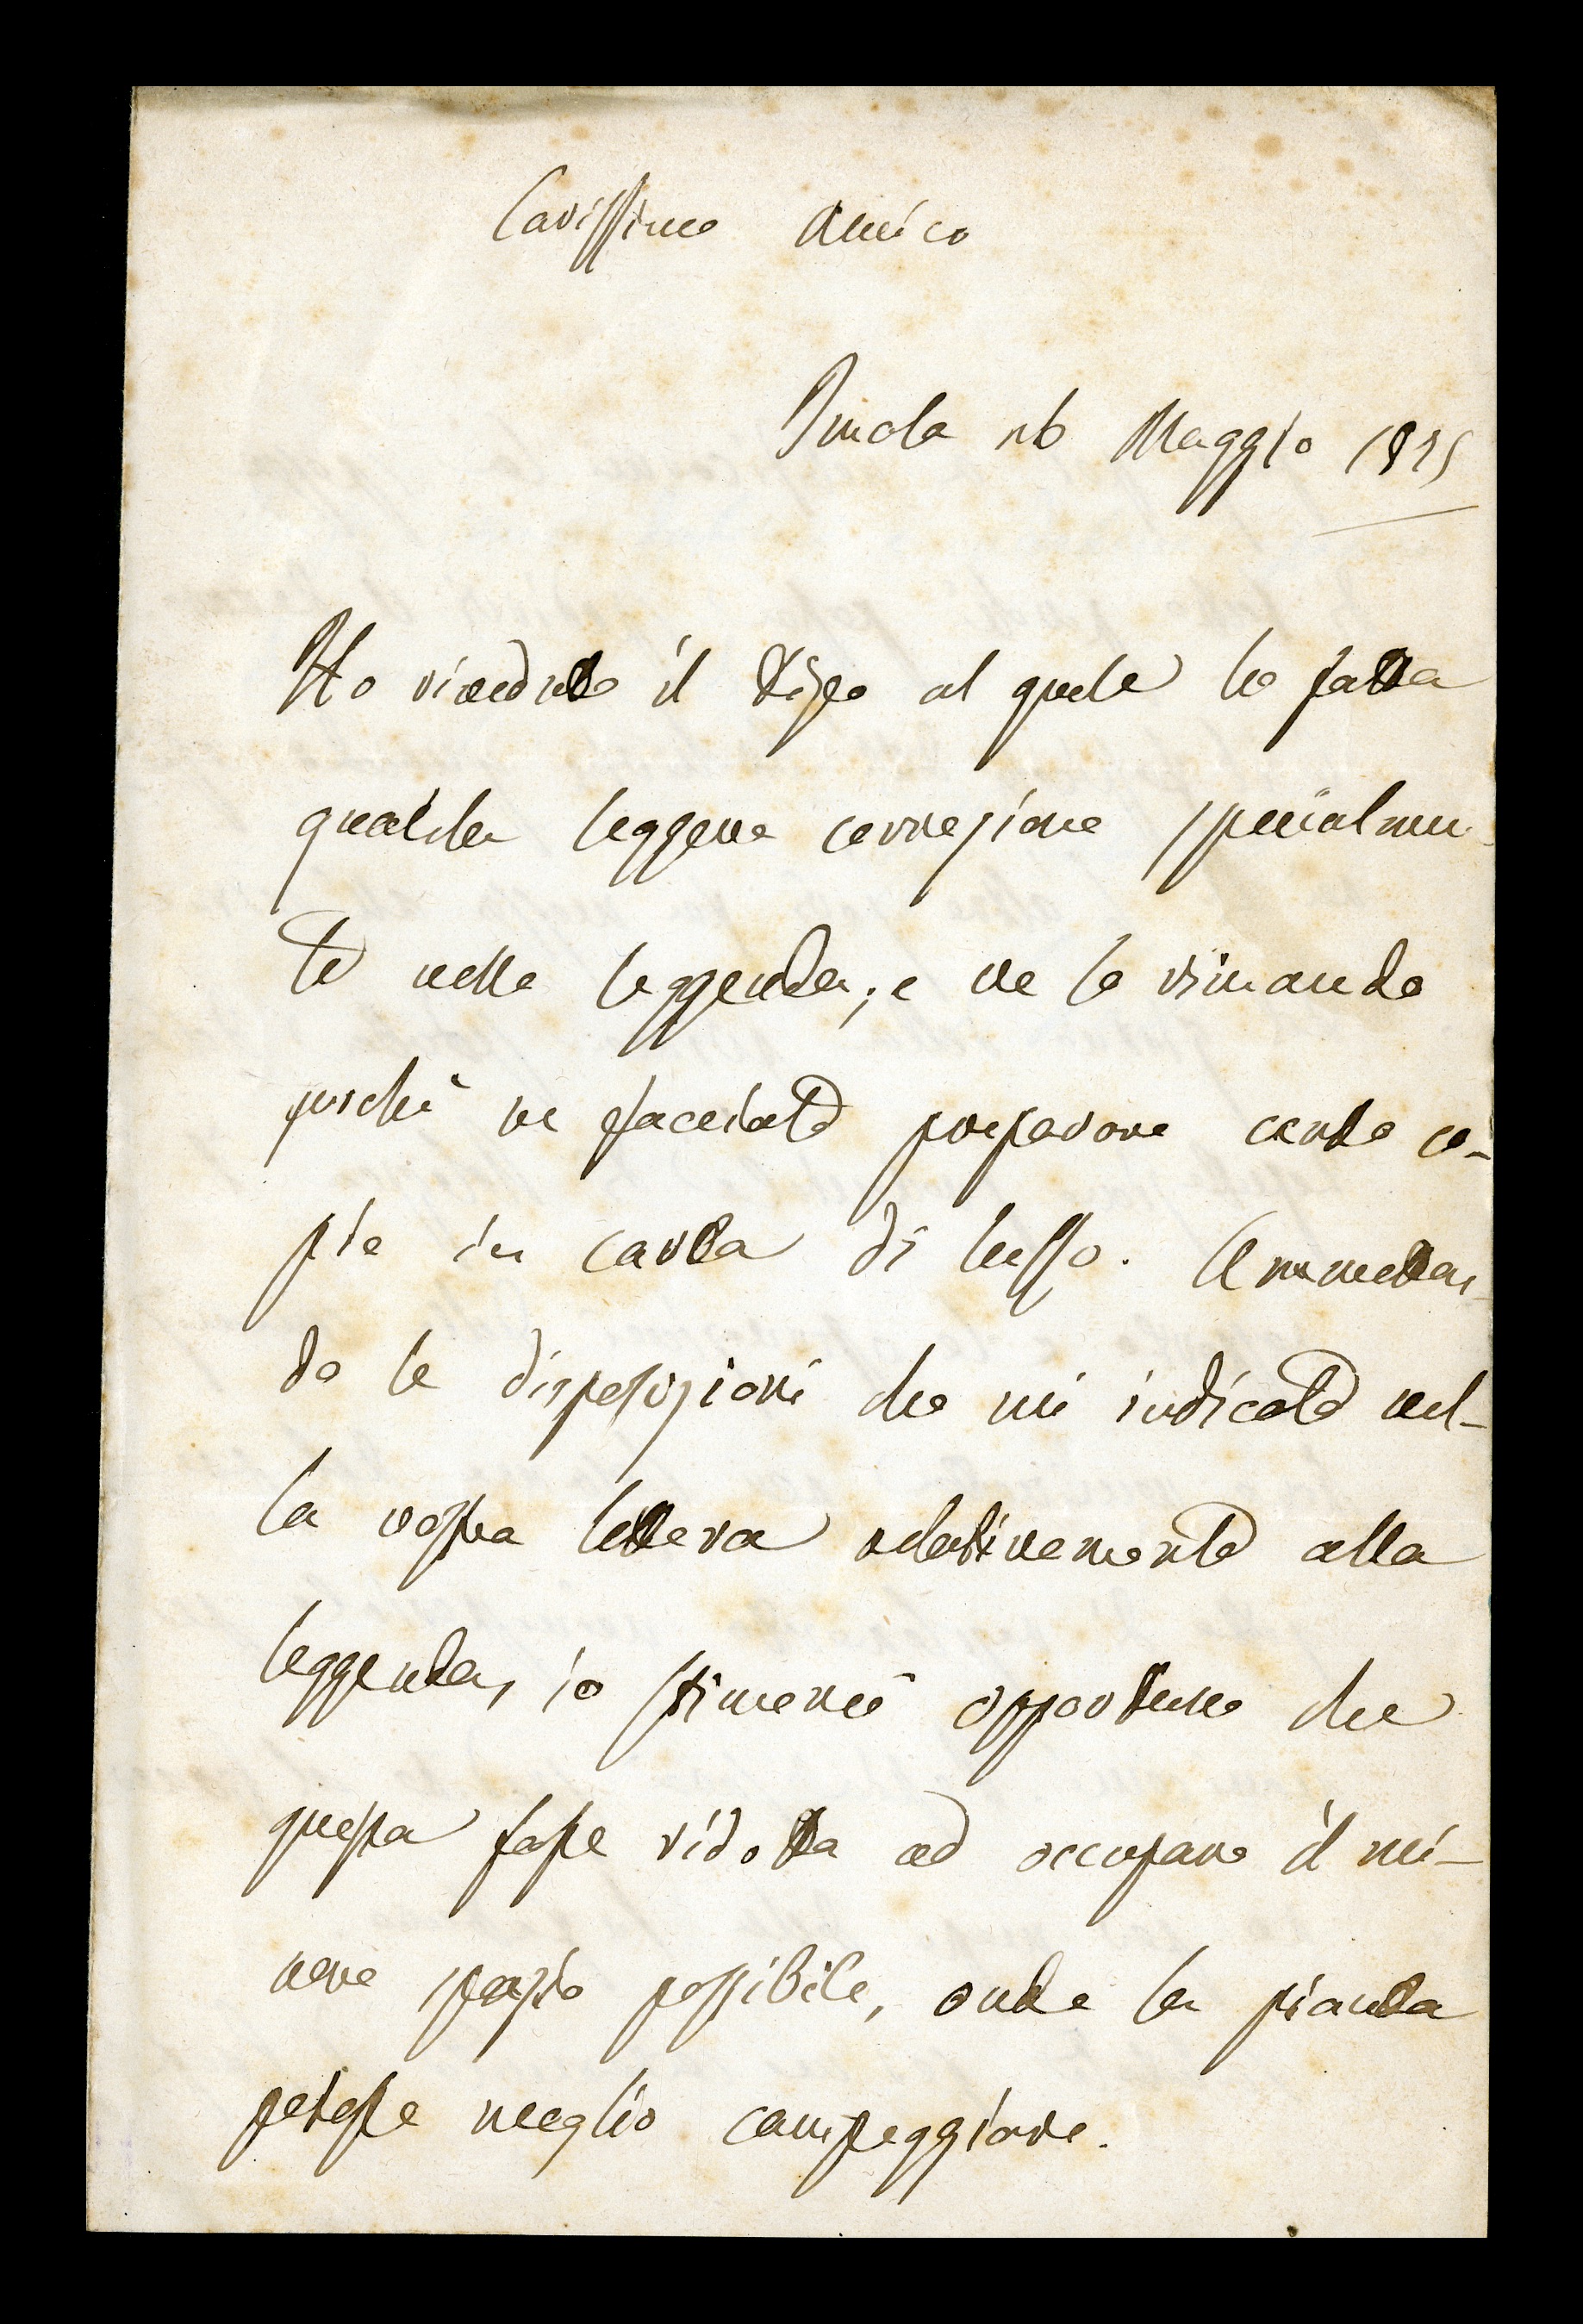 Carissimo Amico
Imola 26 Maggio 1875
Ho riveduto il tipo al quale ho fatta
qualche leggera correzione specialmen-
te nella leggenda; e ve lo rimando
perchè ne facciate preparare cento co-
pie in carta di lusso. Ammetten-
do le disposizioni che mi indicate nel-
la vostra lettera relativamente alla
leggenda, io stimerei opportuno che
questa fosse ridotta ad occupare il mi-
nore spazio possibile, onde la pianta
potesse meglio campeggiare.